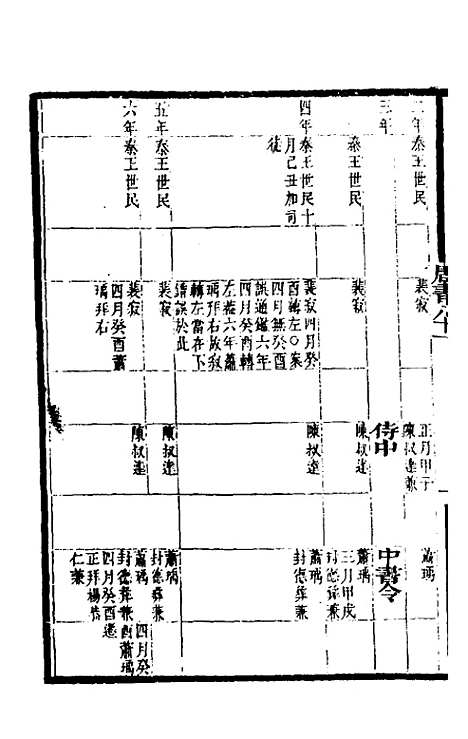 唐書八十一
二年秦王世民
裴寂
正月甲子
陳叔達兼
蕭瑀
三年
侍中
中書令
秦王世民
裴寂
陳叔達
蕭瑀
三月甲戌
封德彝兼
四年秦王世民十
月己丑加司
徒
裴寂四月癸
酉轉左〇案
四月無癸酉
誤通鑑六年
四月癸酉轉
左蓋六年蕭
瑀拜右故寂
轉左當在下
錯誤於此
陳叔達
蕭瑀
封德彝兼
五年秦王世民
裴寂
陳叔達
蕭瑀
封德彝兼
六年秦王世民
裴寂
四月癸酉蕭
瑀拜右
陳叔達
蕭瑀 四月癸
封德彝兼酉蕭瑀
四月癸酉遷
正拜楊恭
仁兼